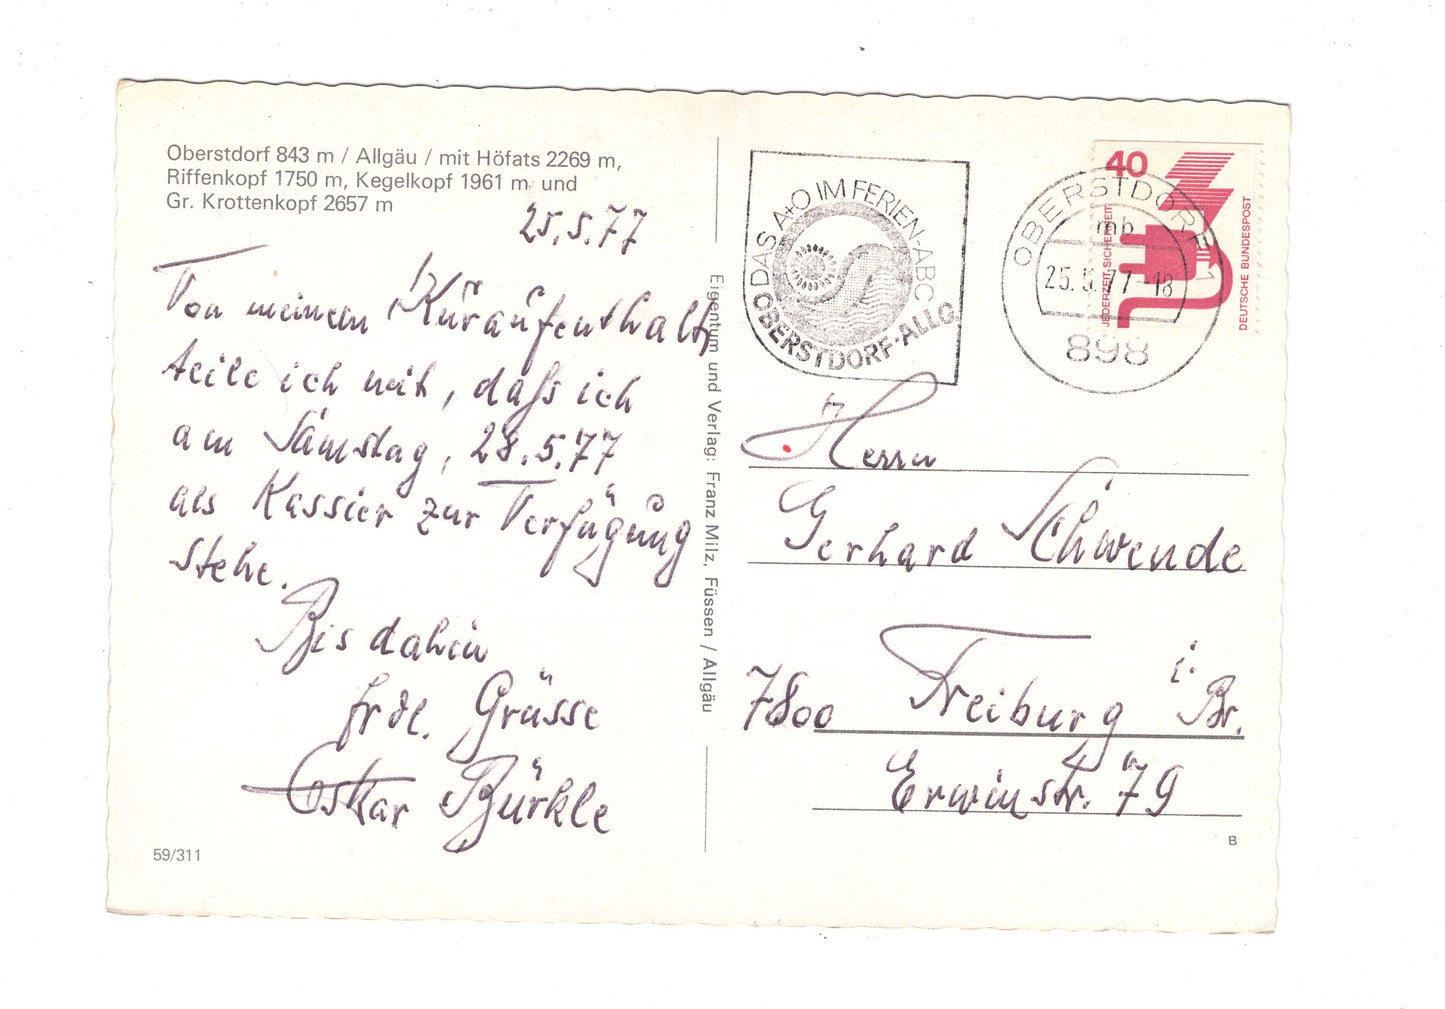 Oberstdorf 843 m / Allgäu / mit Höfats 2269 m,
Riffenkopf 1750 m, Kegelkopf 1961 m und
Gr. Krottenkopf 2657 m
25.5.77
Von meinem Kuraufenthalt
teile ich mit, daß ich
am Samstag, 28.5.77
als Kassier zur Verfügung
stehe.
Bis dahin
frdl. Grüsse
Oskar Bürkle
59/311
Eigentum und Verlag: Franz Milz, Füssen / Allgäu
DAS A+O IM FERIEN-ABC
OBERSTDORF·ALLG.
OBERSTDORF 1
mb
25.5.77-18
898
40
JEDERZEIT SICHERHEIT
DEUTSCHE BUNDESPOST
Herrn
Gerhard Schwende
7800 Freiburg i. Br.
Erwinstr. 79
B